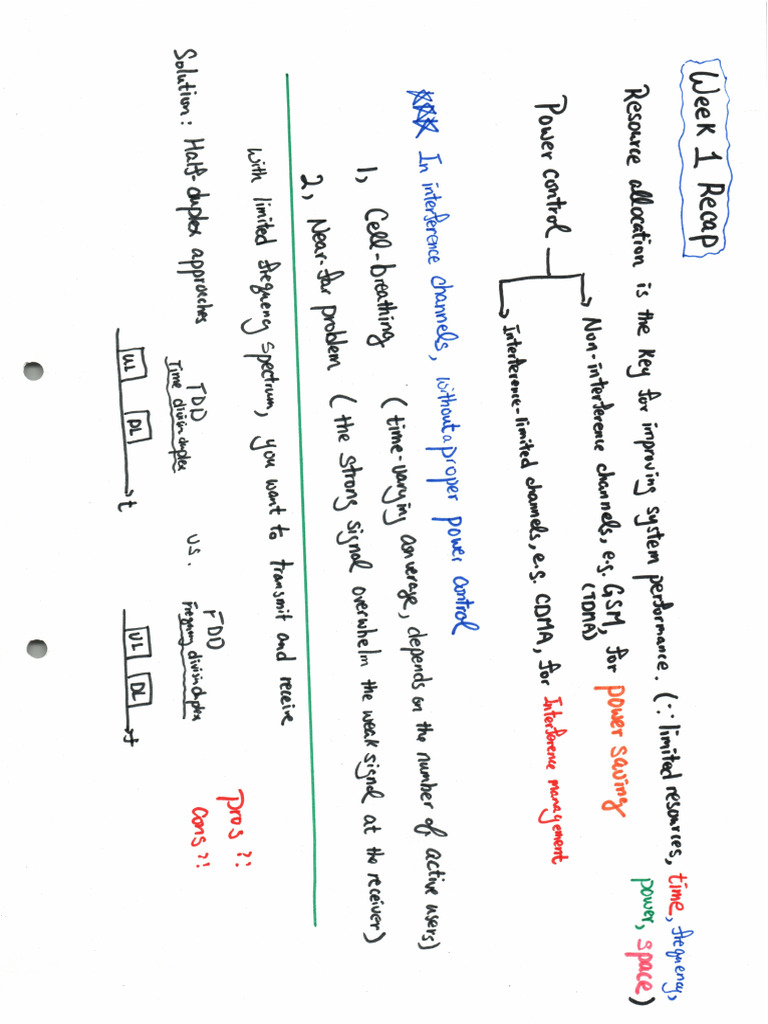 Week 1 Recap
Resource allocation is the key for improving system performance. (∵ limited resources, time, frequency,
power, space)
Power control
Non-interference channels, e.g. GSM, for power saving
(TDMA)
Interference-limited channels, e.g. CDMA, for Interference management
☆☆☆ In interference channels, without a proper power control
1, Cell-breathing (time-varying converage, depends on the number of active users)
2, Near-far problem (the strong signal overwhelm the weak signal at the receiver)
with limited frequency spectrum, you want to transmit and receive
Solution: Half-duplex approaches
TDD vs. FDD
Time division duplex Frequency division duplex
UL DL t
UL DL t
Pros ?!
Cons ?!